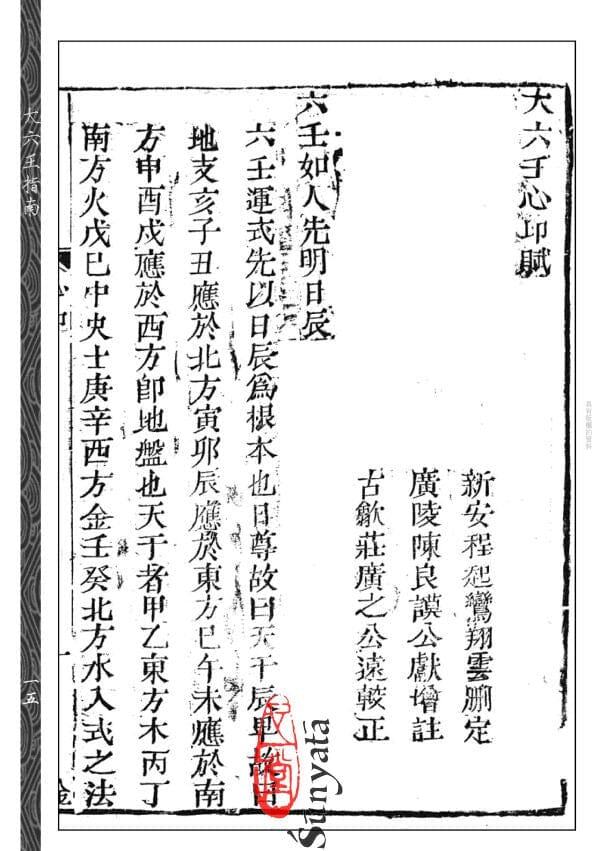 大六壬心印賦
新安程起鸞翔雲刪定
廣陵陳良謨公獻增註
古歙莊廣之公遠較正
六壬如人先明日辰
六壬運式先以日辰爲根本也日尊故曰天干辰卑故曰
地支亥子丑應於北方寅卯辰應於東方巳午未應於南
方申酉戌應於西方卽地盤也天干者甲乙東方木丙丁
南方火戊巳中央土庚辛西方金壬癸北方水入式之法
大六壬指南
一五
Śūnyatā
具有版權的資料